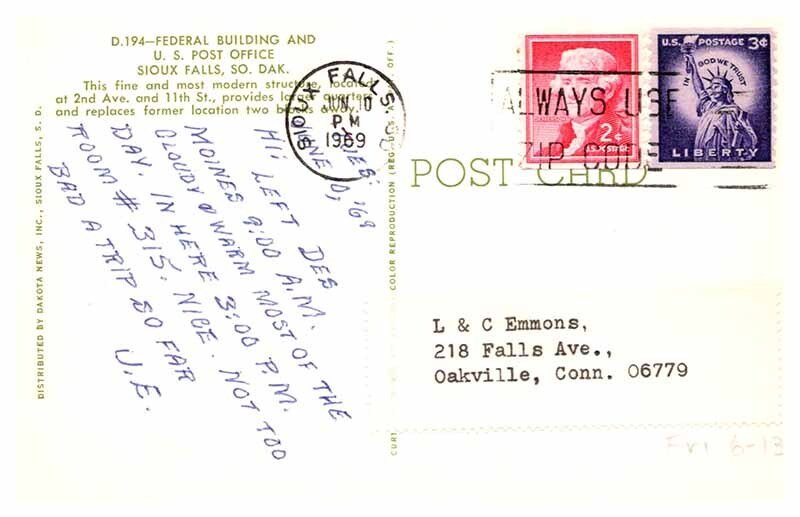 D.194—FEDERAL BUILDING AND
U. S. POST OFFICE
SIOUX FALLS, SO. DAK.
This fine and most modern structure, located
at 2nd Ave. and 11th St., provides larger quarters
and replaces former location two blocks away.
TUES.
JUNE 10, '69
HI: LEFT DES
MOINES 9:00 A.M.
CLOUDY & WARM MOST OF THE
DAY. IN HERE 3:00 P.M.
ROOM # 315. NICE. NOT TOO
BAD A TRIP SO FAR
J.E.
DISTRIBUTED BY DAKOTA NEWS, INC., SIOUX FALLS, S. D.
COLOR REPRODUCTION (REG. U.S. PAT. OFF.)
SIOUX FALLS
JUN 10
PM
1969
ALWAYS USE
ZIP CODE
2¢
U.S. POSTAGE
U.S. POSTAGE 3¢
IN GOD WE TRUST
LIBERTY
POST CARD
L & C Emmons,
218 Falls Ave.,
Oakville, Conn. 06779
Fri 6-13